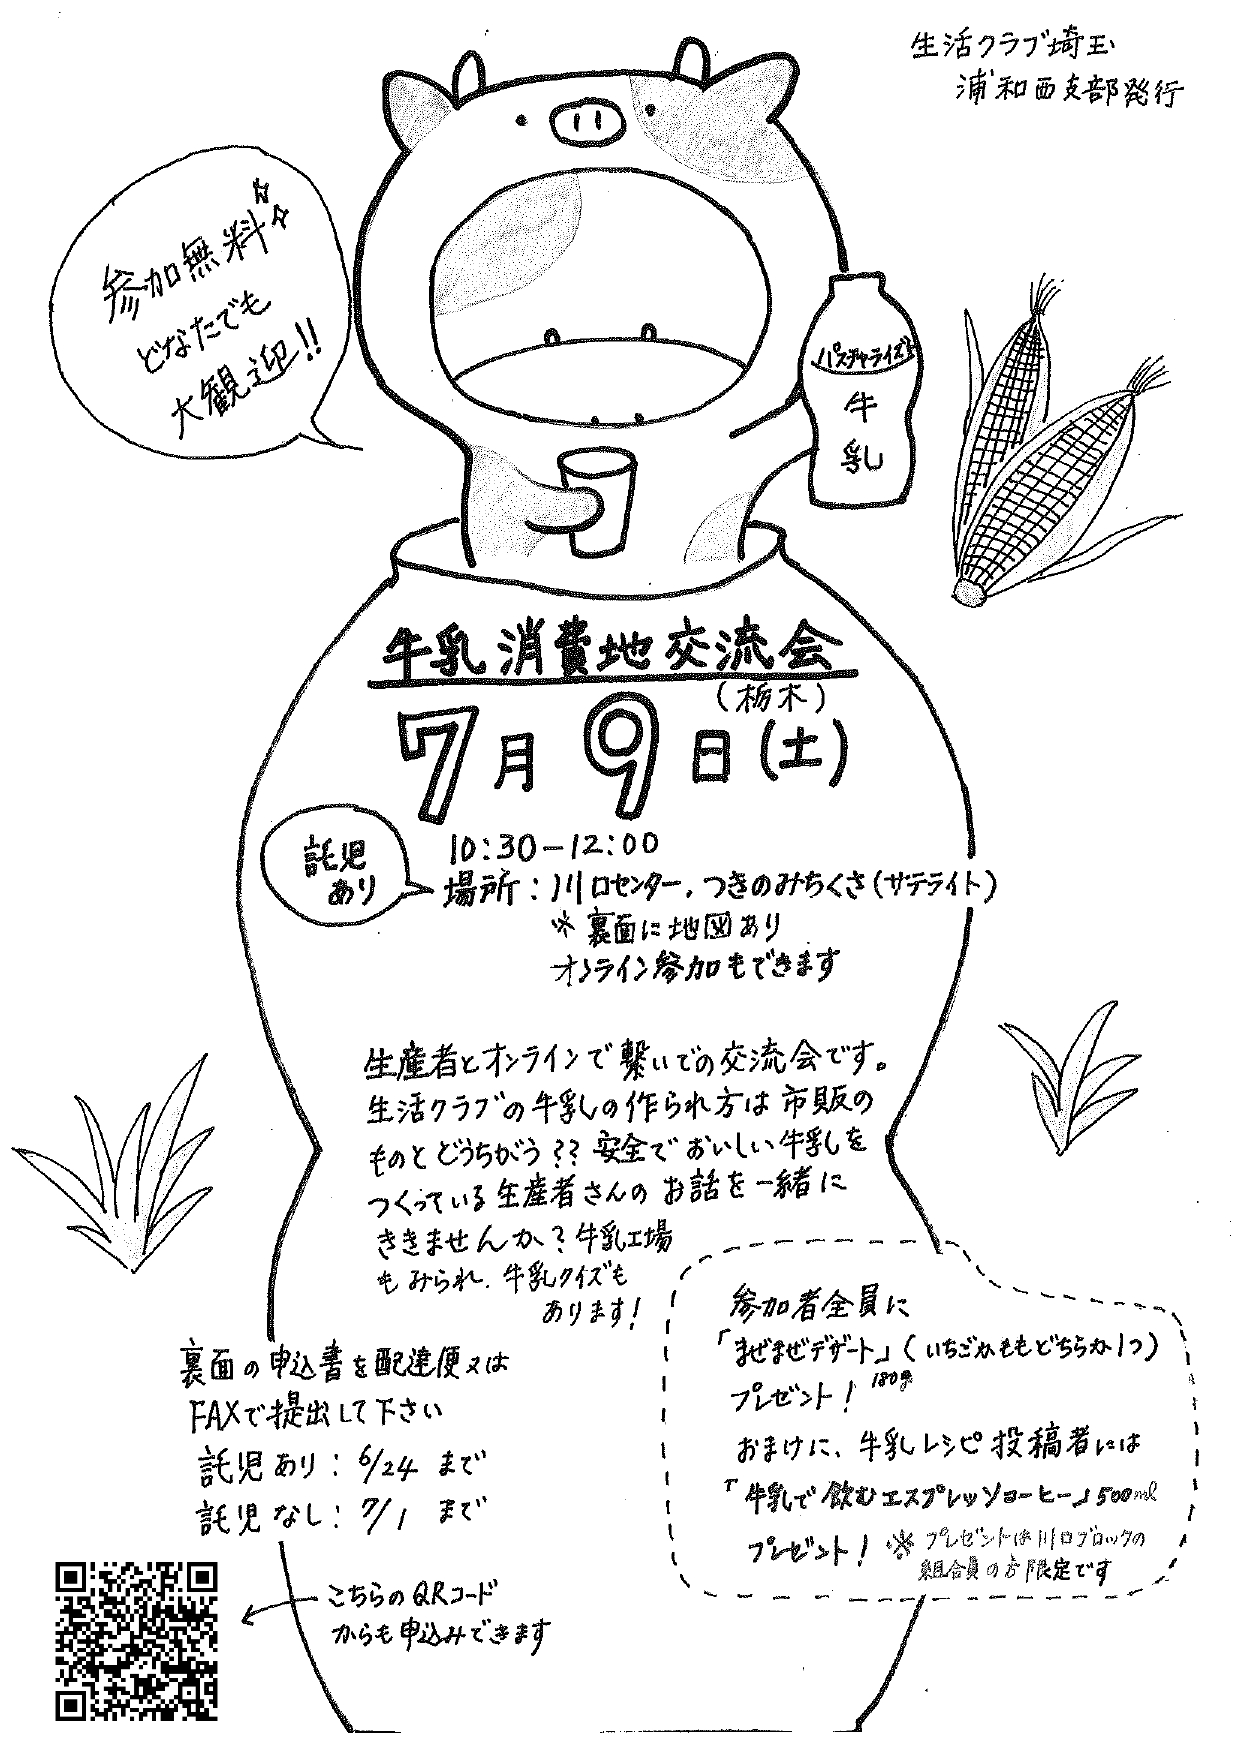 生活クラブ埼玉
浦和西支部発行
参加無料
どなたでも
大観迎!!
パスチャライズド
牛
乳
牛乳消費地交流会
(栃木)
7月9日(土)
託児
あり
10:30-12:00
場所:川口センター、つきのみちくさ(サテライト)
※裏面に地図あり
オンライン参加もできます
生産者とオンラインで繋いでの交流会です。
生活クラブの牛乳の作られ方は市販の
ものとどうちがう??安全でおいしい牛乳を
つくっている生産者さんのお話を一緒に
ききませんか?牛乳工場
もみられ、牛乳クイズも
あります!
裏面の申込書を配達便又は
FAXで提出して下さい
託児あり:6/24まで
託児なし:7/1まで
こちらのQRコード
からも申込みできます
参加者全員に
「まぜまぜデザート」(いちごかももどちらか1つ)
180g
プレゼント!
おまけに、牛乳レシピ投稿者には
「牛乳で飲むエスプレッソコーヒー」500ml
プレゼント!※プレゼントは川口ブロックの
組合員の方限定です